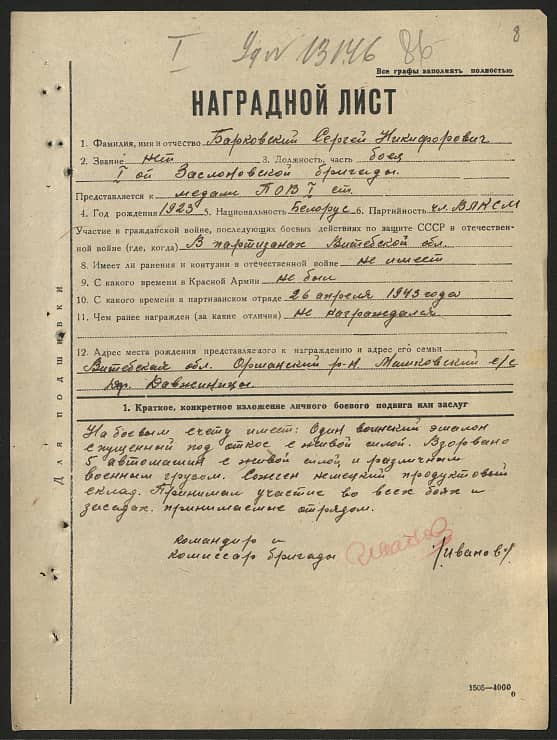 I Удп 13146 86 8
Все графы заполнять полностью
НАГРАДНОЙ ЛИСТ
1. Фамилия, имя и отчество Барковский Сергей Никифорович
2. Звание нет 3. Должность, часть боец
I ой Заслоновской бригады.
Представляется к медали П О В I ст.
4. Год рождения 1923 5. Национальность Белорус 6. Партийность чл. ВЛКСМ
Участие в гражданской войне, последующих боевых действиях по защите СССР и отечествен-
ной войне (где, когда) В партизанах Витебской обл.
8. Имеет ли ранения и контузии в отечественной войне не имеет
9. С какого времени в Красной Армии не был
10. С какого времени в партизанском отряде 26 апреля 1943 года
11. Чем ранее награжден (за какие отличия) не награждался
12. Адрес места рождения представляемого к награждению и адрес его семьи
Витебская обл. Оршанский р-н. Машковский с/с
дер. Давжиницы.
1. Краткое, конкретное изложение личного боевого подвига или заслуг
На боевым счету имеет: Один воинский эшалон
спущенный под откос с живой силой. Взорвано
5 автомашин с живой силой и различным
военным грузом. Сожжен немецкий продуктовый
склад. Принимал участие во всех боях и
засадах. принимаемые отрядом.
командир и
комиссар бригады /Иванов/
Для подшивки
1505—4000
0